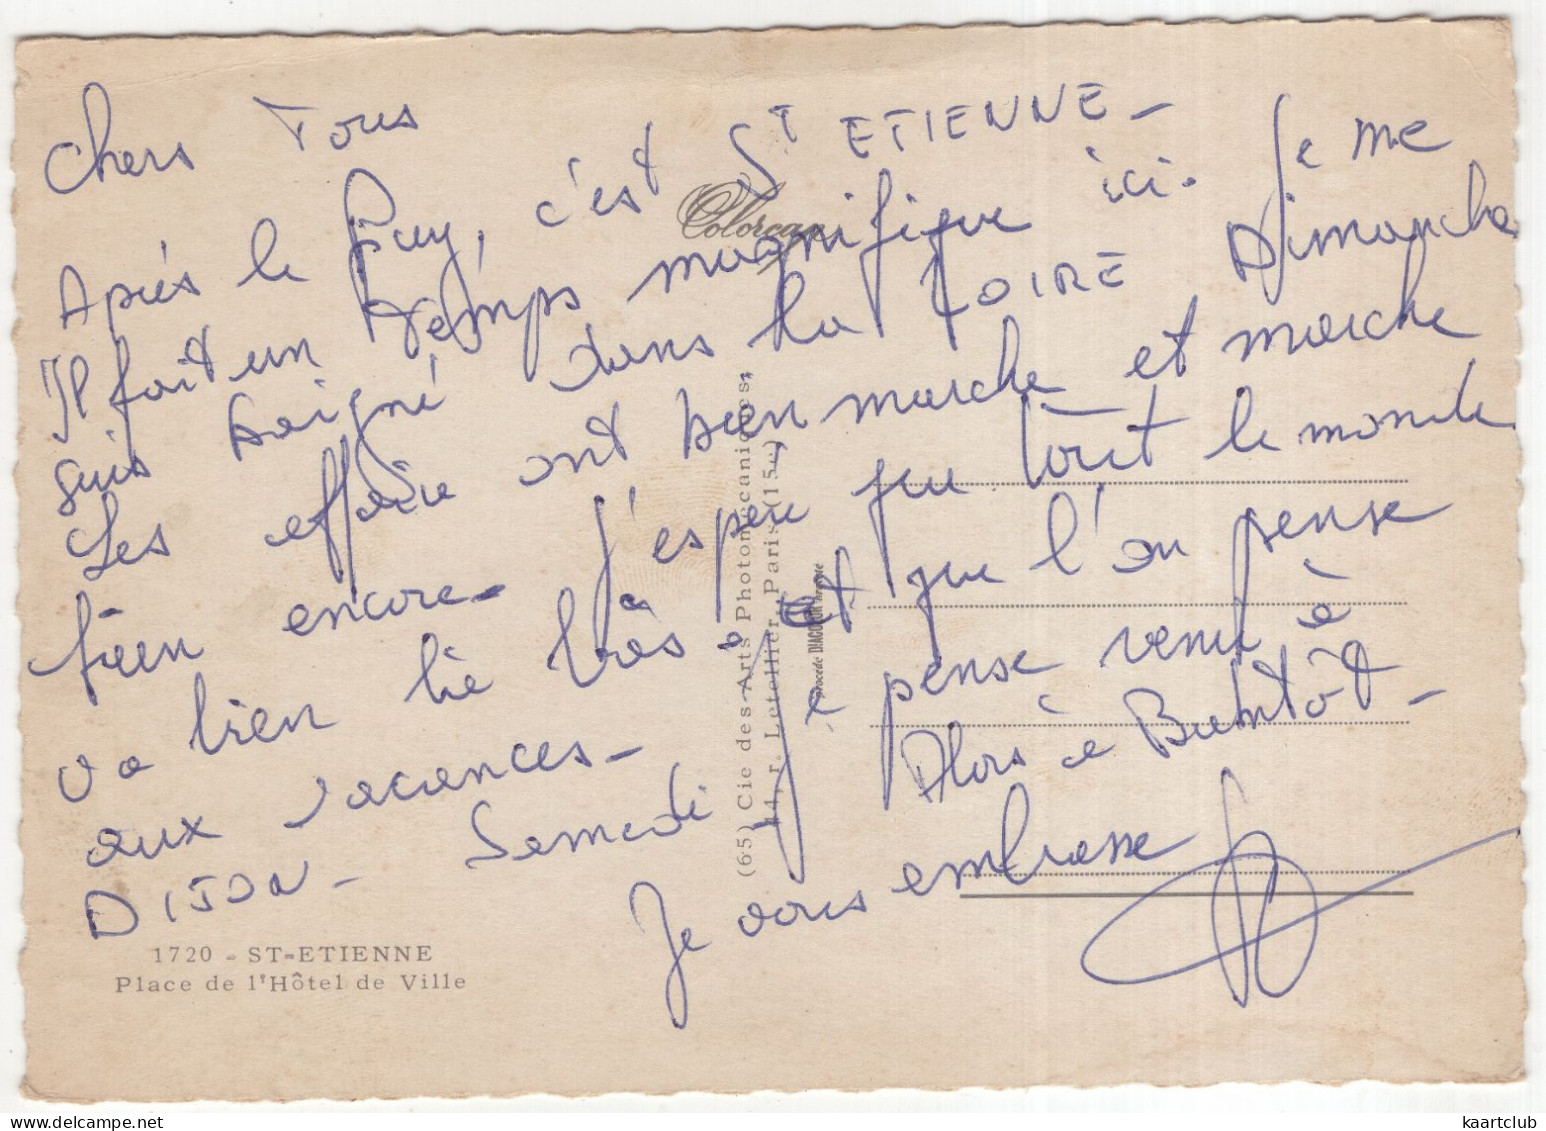 Chers Tous
Après le Puy, c'est St ETIENNE -
Il fait un temps magnifique ici. Je me
suis baigné dans la LOIRE Dimanche
Les affaire ont bien marche et marche
bien encore - J'espère que tout le monde
va bien là bas - et que l'on pense
aux vacances - Je pense venir à
DIJON - Samedi Alors à Bientôt -
Je vous embrasse
Colorcap
(65) Cie des Arts Photomécaniques,
44, r. Letellier, Paris (15e)
procédé DIACOLOR
1720 - ST-ETIENNE
Place de l'Hôtel de Ville
kaartclub